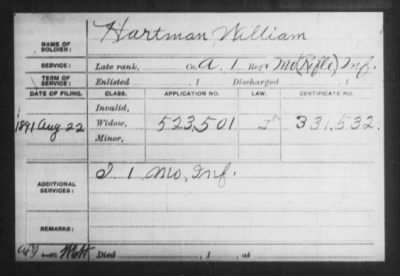 NAME OF SOLDIER: Hartman William
SERVICE: Late rank, Co. A, 1 Reg't Mo (Rifle) Inf.
TERM OF SERVICE: Enlisted , 1 Discharged , 1
DATE OF FILING. CLASS. APPLICATION NO. LAW. CERTIFICATE NO.
Invalid,
1891 Aug 22 Widow, 523,501 331,532.
Minor,
ADDITIONAL SERVICES: I 1 Mo, Inf.
REMARKS:
Died , 1 , at